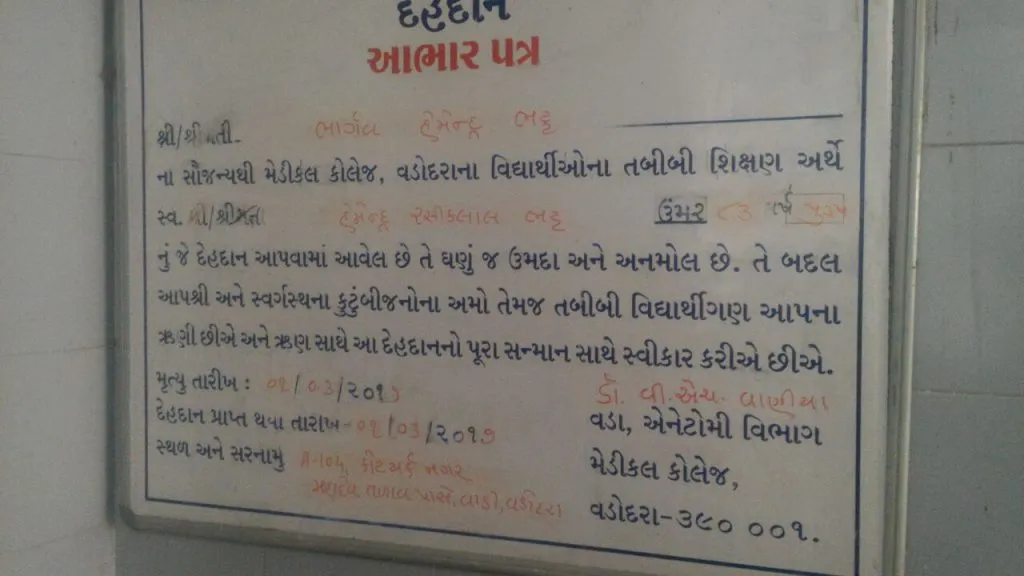 દેહદાન
આભાર પત્ર
શ્રી/શ્રીમતી- ભાર્ગવ હેમેન્દ્ર ભટ્ટ
ના સૌજન્યથી મેડીકલ કોલેજ, વડોદરાના વિદ્યાર્થીઓના તબીબી શિક્ષણ અર્થે
સ્વ. શ્રી/શ્રીમતી હેમેન્દ્ર રસીકલાલ ભટ્ટ ઉંમર ૮૩ વર્ષ પુરુષ
નું જે દેહદાન આપવામાં આવેલ છે તે ઘણું જ ઉમદા અને અનમોલ છે. તે બદલ
આપશ્રી અને સ્વર્ગસ્થના કુટુંબીજનોના અમો તેમજ તબીબી વિદ્યાર્થીગણ આપના
ઋણી છીએ અને ઋણ સાથે આ દેહદાનનો પૂરા સન્માન સાથે સ્વીકાર કરીએ છીએ.
મૃત્યુ તારીખ : ૦૧/૦૩/૨૦૧૭
ડૉ વી.એચ. વાણીયા
દેહદાન પ્રાપ્ત થવા તારીખ-૦૧/૦૩/૨૦૧૭
વડા, એનેટોમી વિભાગ
સ્થળ અને સરનામુ A-૧૦૫, નગર
મેડીકલ કોલેજ,
તળાવ પાસે, વાડી, વડોદરા
વડોદરા-૩૯૦ ૦૦૧.